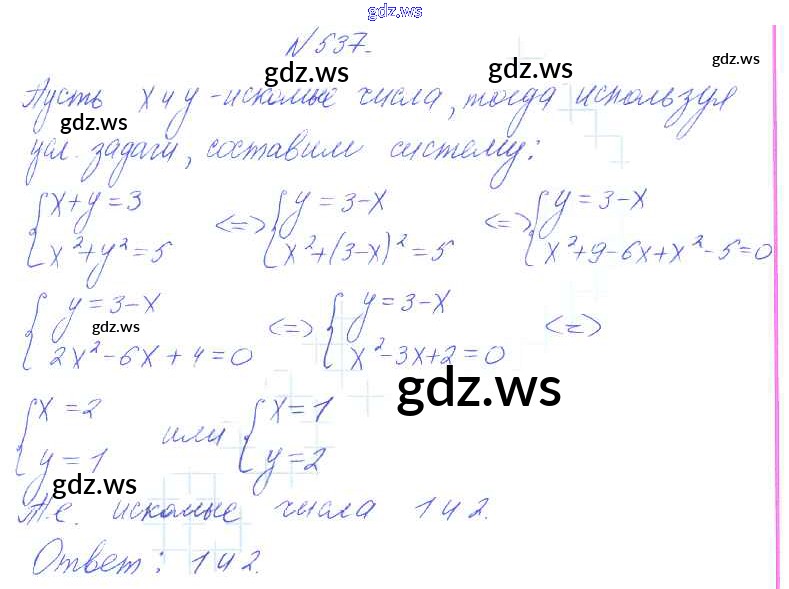 gdz.ws
N 537.
gdz.ws gdz.ws gdz.ws
Пусть x и y - искомые числа, тогда используя
gdz.ws
усл. задачи, составим систему:
{ x + y = 3 <=> { y = 3 - x <=> { y = 3 - x
{ x² + y² = 5 { x² + (3 - x)² = 5 { x² + 9 - 6x + x² - 5 = 0
{ y = 3 - x <=> { y = 3 - x <=>
gdz.ws
{ 2x² - 6x + 4 = 0 { x² - 3x + 2 = 0
gdz.ws
{ x = 2 или { x = 1
{ y = 1 { y = 2
gdz.ws
Т.е. искомые числа 1 и 2.
Ответ: 1 и 2.